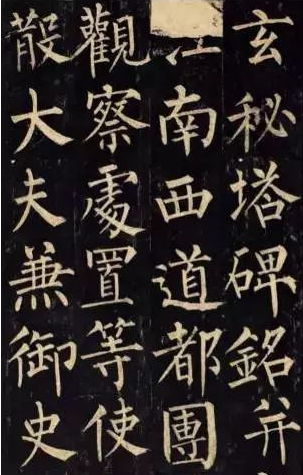 玄秘塔碑銘并
南西道都團
觀察處置等使
散大夫兼御史